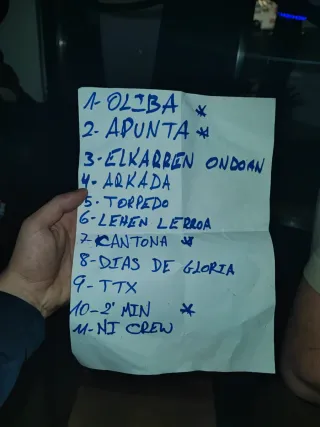 1- OLIBA *
2- APUNTA *
3- ELKARREN ONDOAN
4- ARKADA
5- TORPEDO
6- LEHEN LERROA
7- CANTONA *
8- DIAS DE GLORIA
9- TTX
10- 2' MIN *
11- NI CREW